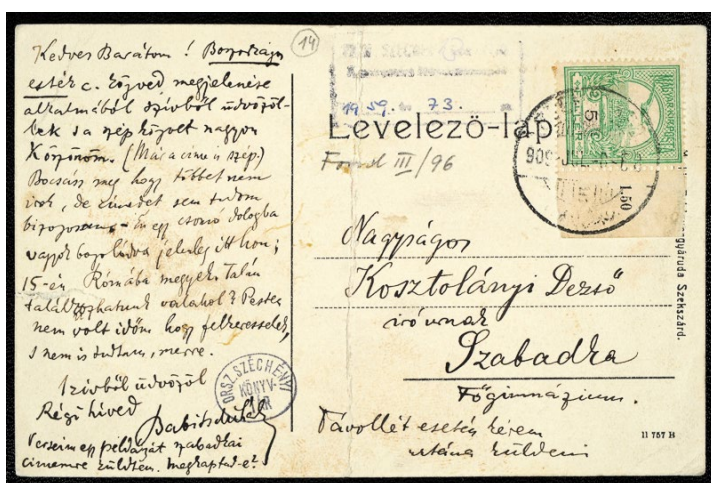 Kedves Barátom! Boszorkányos
esték c. könyved megjelenése
alkalmából szivből üdvözöl-
lek s a szép könyvet nagyon
köszönöm. (Már a címe is szép.)
Bocsáss meg hogy többet nem
irok, de címedet sem tudom
bizonyosan - én egy csomó dologba
vagyok bogozódva jelenleg itthon;
15-én Rómába megyek. Talán
találkozhatunk valahol? Pesten
nem volt időm hogy felkeresselek,
s nem is tudtam, merre.
Szivből üdvözöl
Régi hived
Babits Mihály
Verseim egy példányát szabadkai
cimemre küldtem. megkaptad-e?
14
1959. 73.
Levelező-lap
Fond III/96
Nagyságos
Kosztolányi Dezső
irónak
Szabadka
Főgimnázium.
Távollét esetén kérem
utána küldeni
ORSZ. SZÉCHÉNYI
KÖNYV-
TÁR
1.50
Szekszárd.
11 757 H